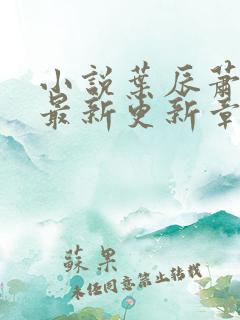 小說葉辰蕭
最新更新章
蘇果
未经同意禁止转载